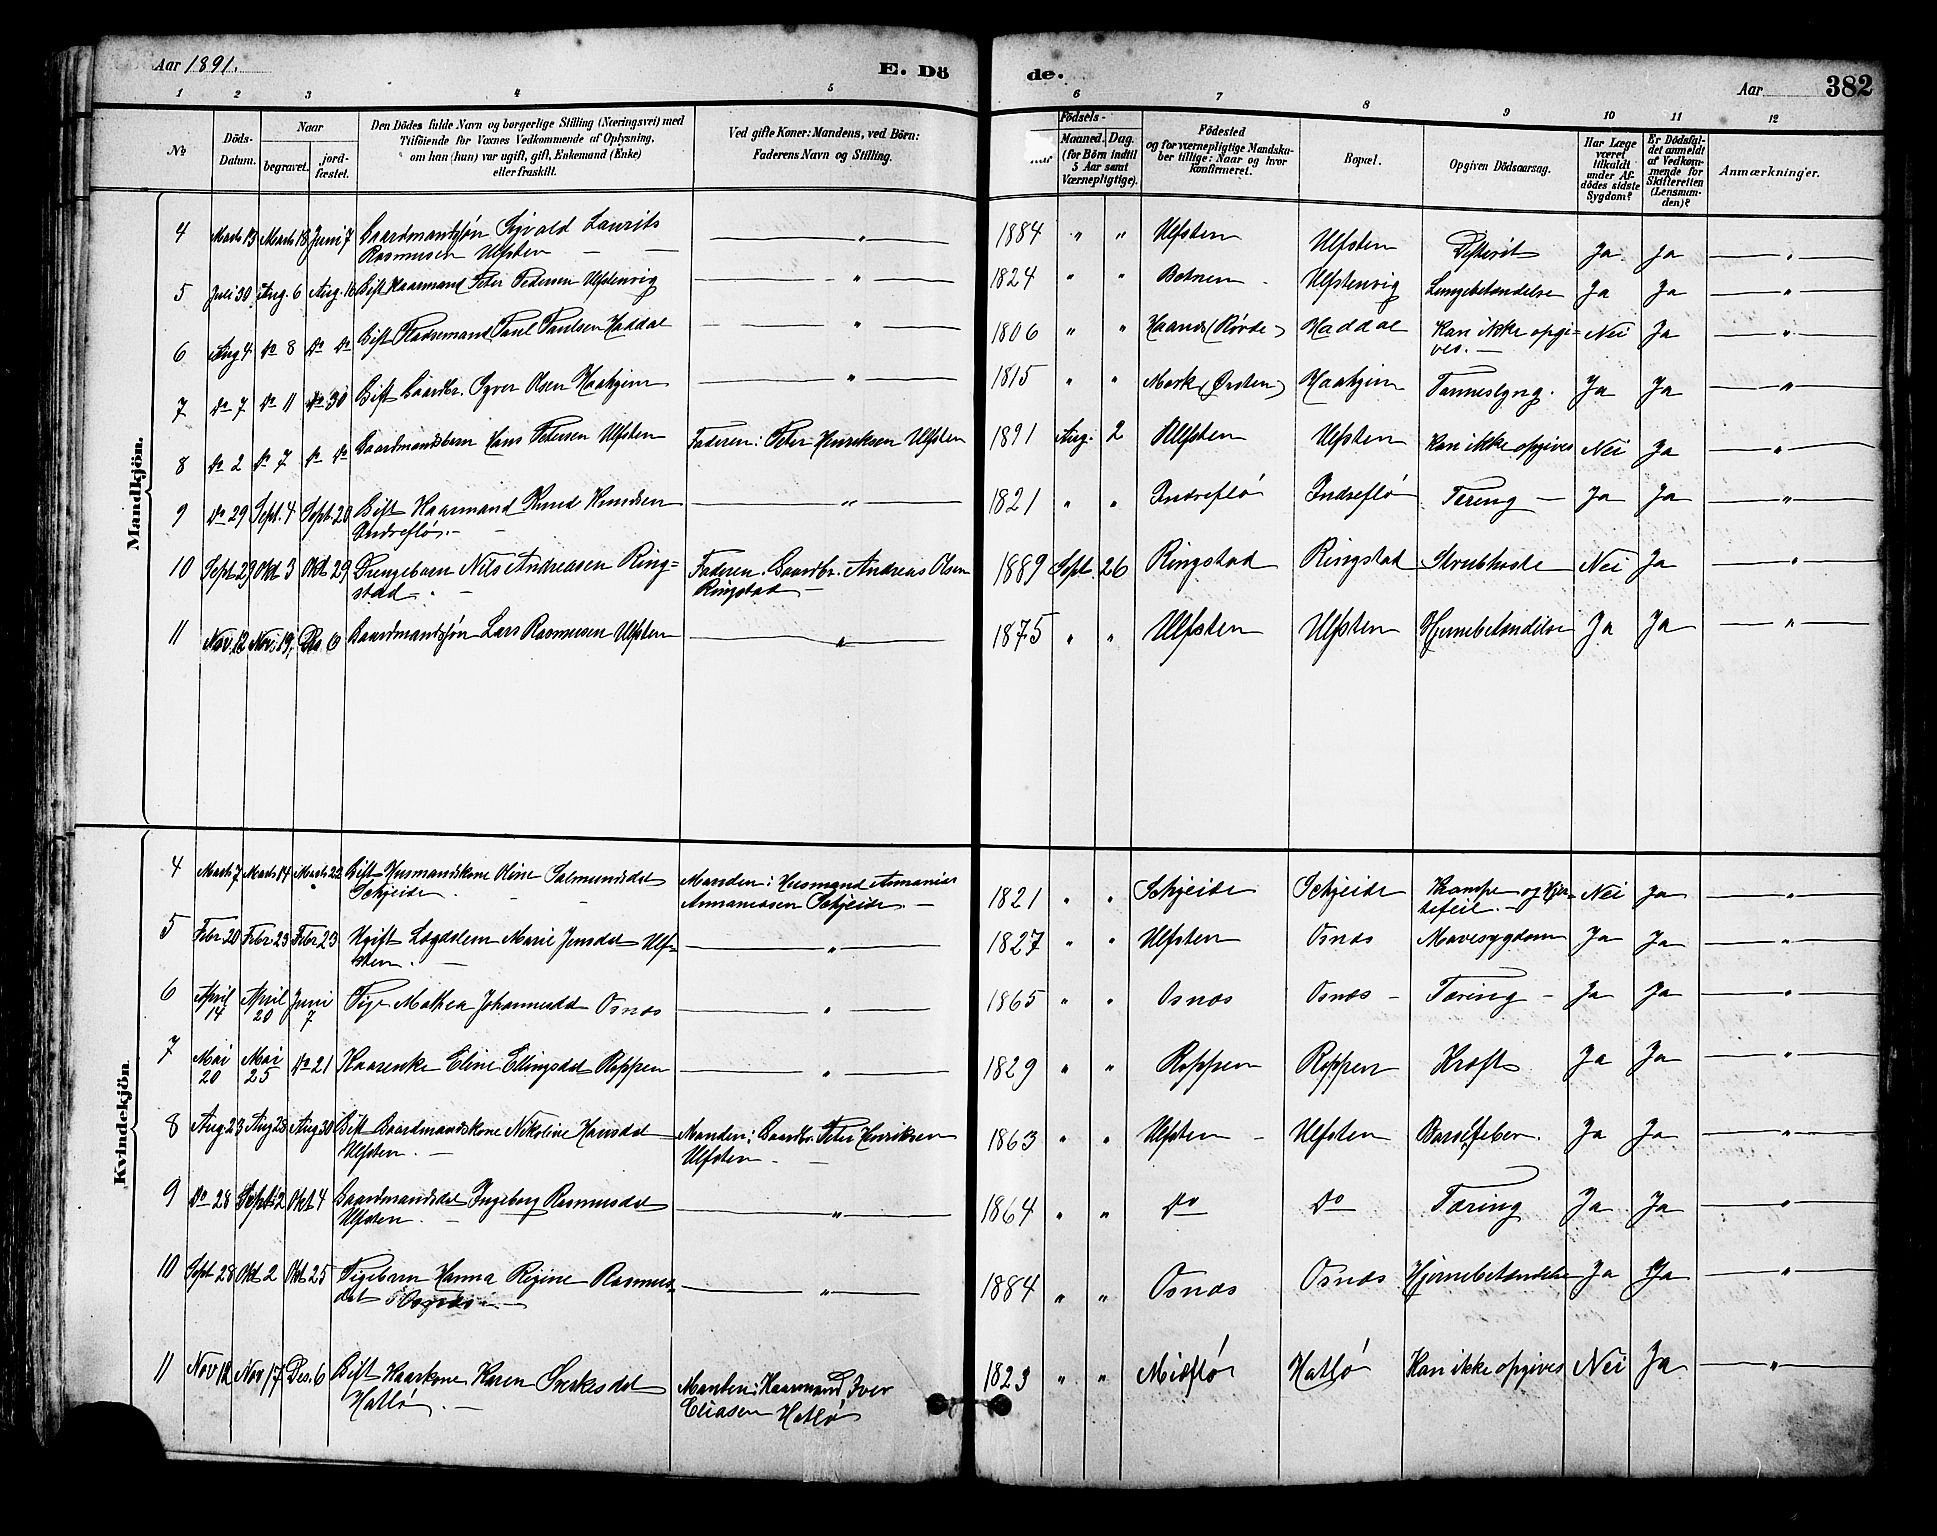 Aar 1891. E. Dö de. Aar 382
1 2 3 4 5 6 7 8 9 10 11 12
№ Döds-Datum. Naar begravet. jordfæstet. Den Dödes fulde Navn og borgerlige Stilling (Næringsvei) med Tilföiende for Voxnes Vedkommende af Oplysning, om han (hun) var ugift, gift, Enkemand (Enke) eller fraskilt. Ved gifte Koner: Mandens, ved Börn: Faderens Navn og Stilling. Födsels- Maaned. Dag. (for Börn indtil 5 Aar samt Værnepligtige). Födested og for værnepligtige Mandskaber tillige: Naar og hvor konfirmeret. Bopæl. Opgiven Dödsaarsag. Har Læge været tilkaldt under Afdödes sidste Sygdom? Er Dödsfaldet anmeldt af Vedkommende for Skifteretten (Lensmanden)? Anmærkninger.
Mandkjön.
4 Marts 13 Marts 18 Juni 7 Gaardmandssøn Sigvald Laurits Rasmussen Ulfsten — " 1884 " " Ulfsten Ulfsten Difterit Ja Ja "
5 Juli 30 Aug. 6 Aug. 16 Gift Kaarmand Peter Pedersen Ulfstenvig " 1824 " " Botnen Ulfstenvig Lungebetændelse Ja Ja "
6 Aug 4 Do 8 Do Do Gift Fladsemand Paul Paulsen Haddal " 1806 " " Haands (Rövde) Haddal Kan ikke opgives. — Nei Ja "
7 Do 7 Do 11 Do 30 Gift Gaardbr. Syver Olsen Haakjem " 1815 " " Mork (Ørsten) Haakjem Tarmeslyng. Ja Ja "
8 Do 2 Do 7 Do Do Gaardmandsbarn Hans Petersen Ulfsten Faderen: Peter Henriksen Ulfsten 1891 Aug. 2 Ulfsten Ulfsten Kan ikke opgives Nei Ja "
9 Do 29 Sept. 4 Sept. 20 Gift Kaarmand Knud Knudsen Indreflø. — " 1821 " " Indreflø Indreflø Tæring — Ja Ja "
10 Sept 29 Okt 3 Okt 29 Drengebarn Nils Andreasen Ringstad — Faderen Gaardbr. Andreas Olsen Ringstad — 1889 Sept. 26 Ringstad Ringstad Strubhoste Nei Ja "
11 Nov. 12 Nov. 19, Des 6 Gaardmandssøn Lars Rasmussen Ulfsten " 1875 " " Ulfsten Ulfsten Hjernebetændelse Ja Ja "
Kvindekjön.
4 Marts 7 Marts 14 Marts 22 Gift Husmandskone Oline Salmundsdat Schjeide. Manden: Husmand Annanias Annaniasen Schjeide. — 1821 " " Schjeide Schjeide Krampe og Hjertefeil. — Nei Ja "
5 Febr 20 Febr 23 Febr 23 Ugift Lægdslem Marie Jensdat Ulfsten. — " 1827 " " Ulfsten Osnæs Mavesygdom Ja Ja "
6 April 14 April 20 Juni 7 Pige Mathea Johannesdat Osnæs " 1865 " " Osnæs Osnæs — Tæring — Ja Ja "
7 Mai 20 Mai 25 Do 21 Kaarenke Eline Ellingsdat Roppen " 1829 " " Roppen Roppen Kræft Ja Ja "
8 Aug. 23 Aug 28 Aug 30 Gift Gaardmandskone Nikoline Hansdat Ulfsten. — Manden: Gaardbr. Peter Henriksen Ulfsten. — 1863 " " Ulfsten — Ulfsten Barselfeber. Ja Ja "
9 Do 28 Sept. 2 Okt 4 Gaardmandsdat Ingeborg Rasmusdat Ulfsten. — " 1864 " " Do Do Tæring Ja Ja "
10 Sept 28 Okt 2 Okt 25 Pigebarn Hanna Regine Rasmusdat Osnæs. — " 1884 " " Osnæs Osnæs Hjernebetændelse Ja Ja "
11 Nov 12 Nov 17 Des. 6 Gift Kaarkone Karen Sverkesdat Hatlø. — Manden: Kaarmand Iver Eliasen Hatlø 1823 " " Midflø Hatlø Kan ikke opgives Nei Ja "